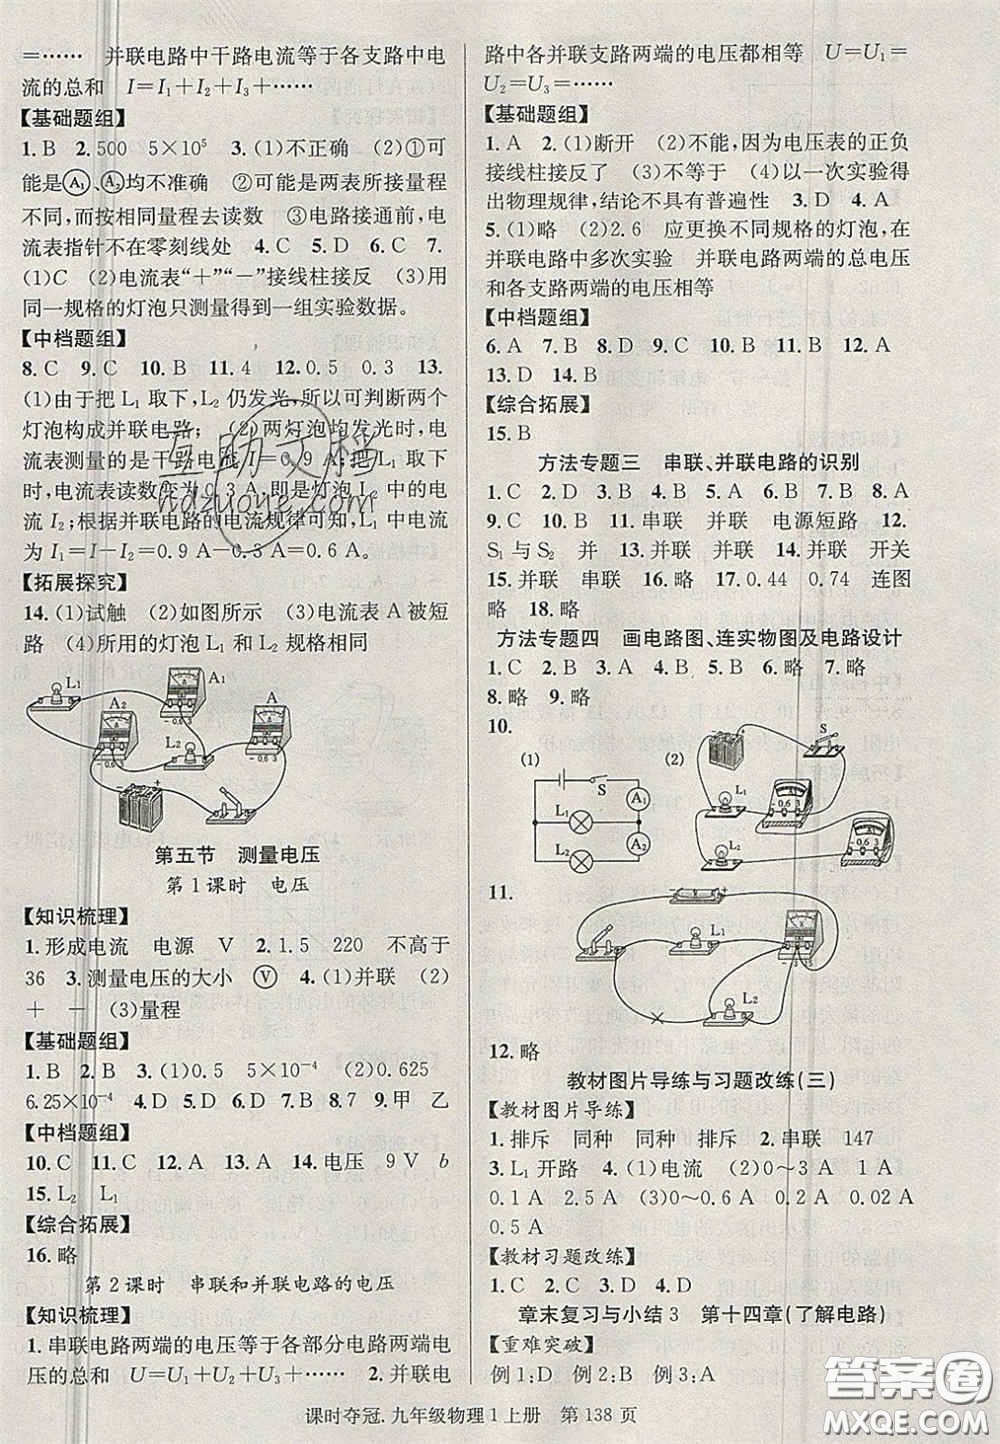 =…… 并联电路中干路电流等于各支路中电
流的总和 I=I₁+I₂+I₃+……
【基础题组】
1.B 2.500 5×10⁵ 3.(1)不正确 (2)①可
能是Ⓐ₁、Ⓐ₂均不准确 ②可能是两表所接量程
不同,而按相同量程去读数 ③电路接通前,电
流表指针不在零刻线处 4.C 5.D 6.C 7.
(1)C (2)电流表“+”“-”接线柱接反 (3)用
同一规格的灯泡只测量得到一组实验数据。
【中档题组】
8.C 9.C 10.B 11.4 12.0.5 0.3 13.
(1)由于把 L₁ 取下,L₂ 仍发光,所以可判断两个
灯泡构成并联电路; (2)两灯泡均发光时,电
流表测量的是干路电流 I=0.9 A;把 L₁ 取下
时,电流表读数变为 0.3 A,即是灯泡 L₂ 中的电
流 I₂;根据并联电路的电流规律可知 L₁ 中电流
为 I₁=I-I₂=0.9 A-0.3 A=0.6 A。
【拓展探究】
14.(1)试触 (2)如图所示 (3)电流表 A 被短
路 (4)所用的灯泡 L₁ 和 L₂ 规格相同
L₁
A₁
A
A₂
L₂
- 0.6 3
- 0.6 3
- 0.6 3
+ -
第五节 测量电压
第 1 课时 电压
【知识梳理】
1.形成电流 电源 V 2.1.5 220 不高于
36 3.测量电压的大小 Ⓥ 4.(1)并联 (2)
+ - (3)量程
【基础题组】
1.B 2.B 3.(1)0.5 5×10⁻⁴ (2)0.625
6.25×10⁻⁴ 4.D 5.D 6.D 7.B 8.B 9.甲 乙
【中档题组】
10.C 11.C 12.A 13.A 14.电压 9 V b
15.L₂ L₁
【综合拓展】
16.略
第 2 课时 串联和并联电路的电压
【知识梳理】
1.串联电路两端的电压等于各部分电路两端电
压的总和 U=U₁+U₂+U₃+…… 2.并联电
路中各并联支路两端的电压都相等 U=U₁=
U₂=U₃=……
【基础题组】
1.A 2.(1)断开 (2)不能,因为电压表的正负
接线柱接反了 (3)不等于 (4)以一次实验得
出物理规律,结论不具有普遍性 3.D 4.A
5.(1)略 (2)2.6 应更换不同规格的灯泡,在
并联电路中多次实验 并联电路两端的总电压
和各支路两端的电压相等
【中档题组】
6.A 7.B 8.D 9.B 10.B 11.B 12.A
13.D 14.B
【综合拓展】
15.B
方法专题三 串联、并联电路的识别
1.C 2.D 3.D 4.D 5.A 6.D 7.B 8.A
9.D 10.B 11.串联 并联 电源短路 12.
S₁ 与 S₂ 并 13.并联 串联 14.并联 开关
15.并联 串联 16.略 17.0.44 0.74 连图
略 18.略
方法专题四 画电路图、连实物图及电路设计
1.C 2.B 3.D 4.A 5.B 6.略 7.略
8.略 9.略
10.
(1)
S
L₁
A₁
L₂
A₂
(2)
S
L₁
L₂
- 0.6 3
- 0.6 3
11.
L₁
L₂
-
12.略
教材图片导练与习题改练(三)
【教材图片导练】
1.排斥 同种 同种 排斥 2.串联 147
3.L₁ 开路 4.(1)电流 (2)0~3 A 1 A
0.1 A 2.5 A (3)0~0.6 A 0.2 A 0.02 A
0.5 A
【教材习题改练】
1.C 2.C 3.D 4.D
章末复习与小结 3 第十四章(了解电路)
【重难突破】
例 1:D 例 2:D 例 3:C 例 4:A
课时夺冠.九年级物理 1 上册 第 138 页
互助文档
hdzuowe.com
答案圈
MXQE.COM